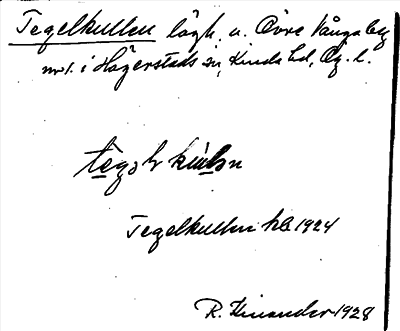 Tegelkullen lägh. u. Övre Vånga by
nr 1. i Hägerstads sn, Kinda hd, Ög. l.
Tegelkullen hb 1924
R. Kinander 1928